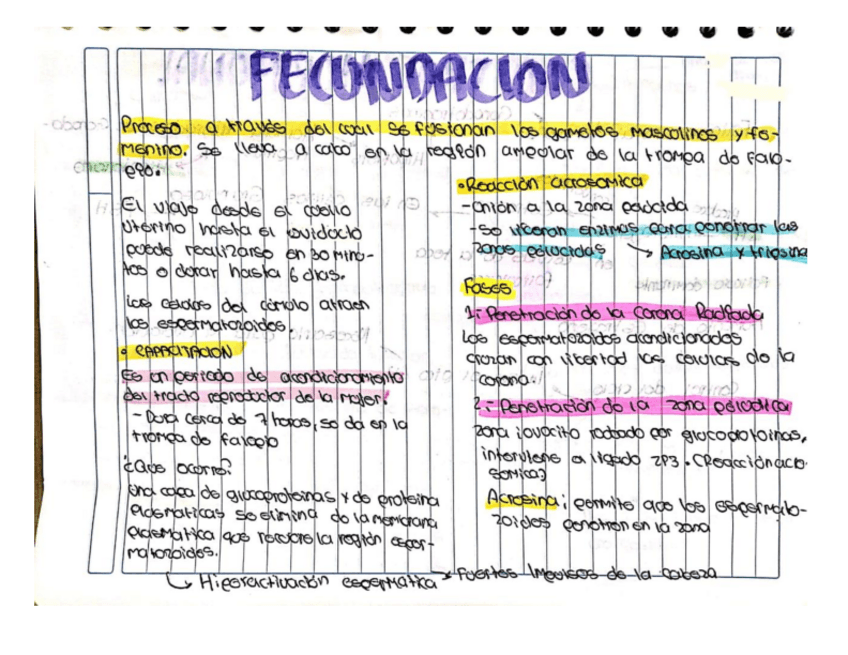 FECUNDACION
Proceso a través del cual se fusionan los gametos masculinos y fe-
menino. Se lleva a cabo en la región ampular de la trompa de falo-
pio.
El viaje desde el cuello
uterino hasta el oviducto
puede realizarse en 30 minu-
tos o durar hasta 6 días.
Las celulas del cúmulo atraen
los espermatozoides.
• CAPACITACION
Es un periodo de acondicionamiento
del tracto reproductor de la mujer.
- Dura cerca de 7 horas, se da en la
trompa de falopio
¿Que ocurre?
Una capa de glucoproteinas y de proteina
plasmaticas se elimina de la membrana
plasmatica que recubre la región esper-
matozoides.
↳ Hiperactivación espermatica → Fuertes Impulsos de la cabeza
• Reacción acrosomica
- Unión a la zona pelúcida
- Se liberan enzimas para penetrar las
zonas pelucidas → Acrosina y tripsina
Fases
1.- Penetración de la Corona Radiada
Los espermatozoides acondicionados
cruzan con libertad las celulas de la
corona.
2.- Penetración de la zona
zona: ovocito rodeado por glucoproteinas,
interviene a ligado ZP3. (Reacción acro-
somica)
Acrosina: permite que los espermato-
zoides penetren en la zona